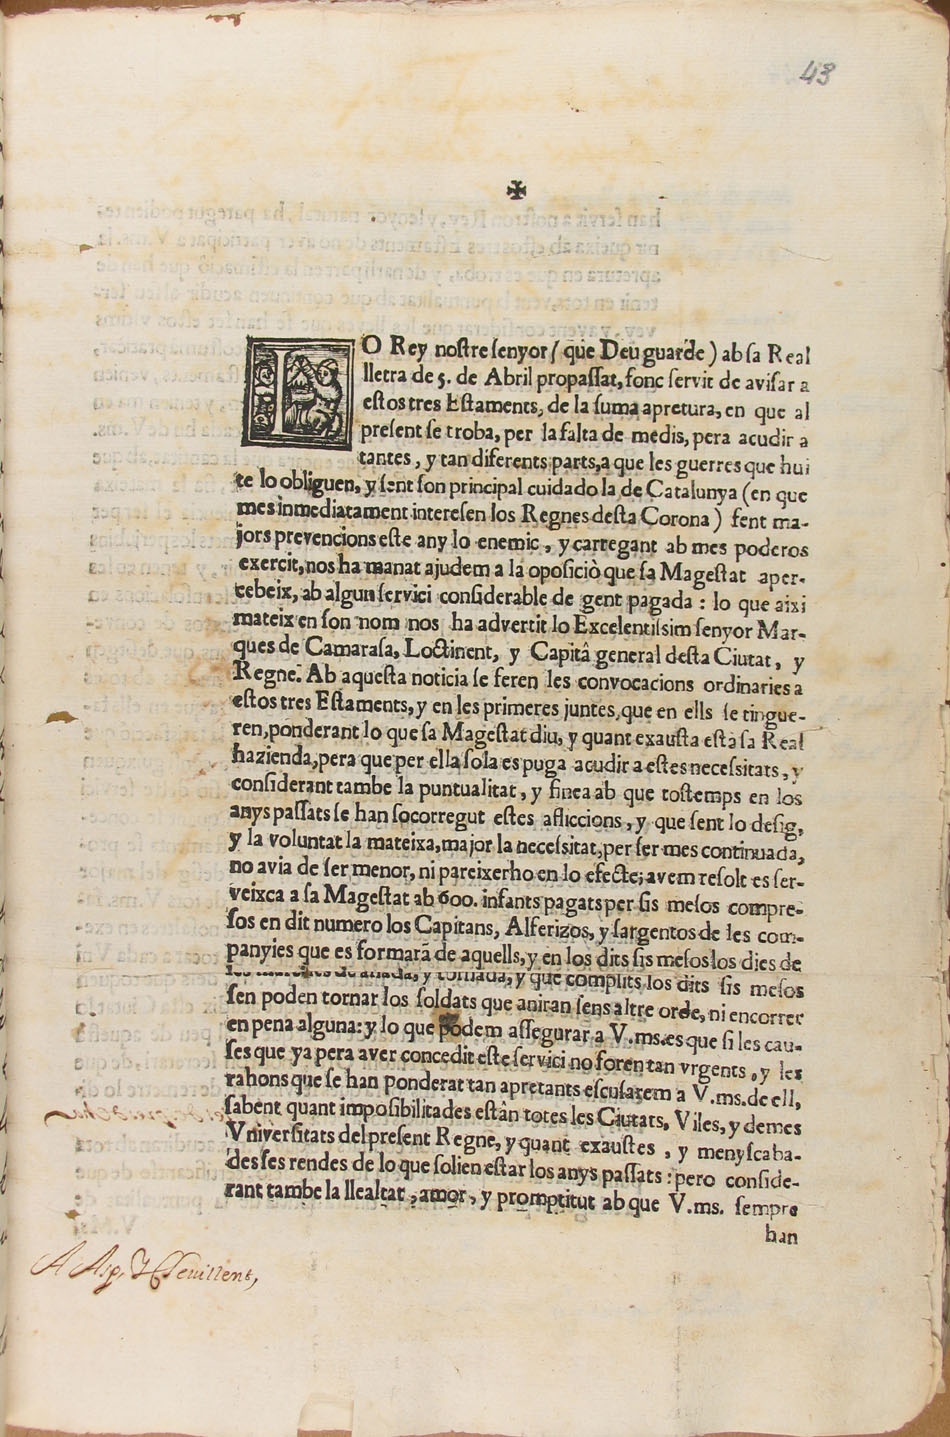 43
✠
LO Rey nostre senyor ( que Deu guarde ) ab sa Real
lletra de 5. de Abril propassat, fonc servit de avisar a
estos tres Estaments, de la suma apretura, en que al
present se troba, per la falta de medis, pera acudir a
tantes, y tan diferents parts, a que les guerres que hui
te lo obliguen, y sent son principal cuidado la de Catalunya (en que
mes inmediatament interesen los Regnes desta Corona) fent ma-
jors prevencions este any lo enemic, y carregant ab mes poderos
exercit, nos ha manat ajudem a la oposiciò que sa Magestat aper-
cebeix, ab algun servici considerable de gent pagada : lo que aixi
mateix en son nom nos ha advertit lo Excelentissim senyor Mar-
ques de Camarasa, Loctinent, y Capitâ general desta Ciutat, y
Regne. Ab aquesta noticia se feren les convocacions ordinaries a
estos tres Estaments, y en les primeres juntes, que en ells se tingue-
ren, ponderant lo que sa Magestat diu, y quant exausta està sa Real
hazienda, pera que per ella sola es puga acudir a estes necessitats, y
considerant tambe la puntualitat, y finea ab que tostemps en los
anys passats se han socorregut estes afliccions, y que sent lo desig,
y la voluntat la mateixa, major la necessitat, per ser mes continuada,
no avia de ser menor, ni pareixerho en lo efecte; avem resolt es ser-
veixca a sa Magestat ab 600. infants pagats per sis mesos compre-
sos en dit numero los Capitans, Alferizos, y sargentos de les com-
panyies que es formarã de aquells, y en los dits sis mesos los dies de
les marches de anada, y tornada, y que complits los dits sis mesos
sen poden tornar los soldats que aniran sens altre orde, ni encorrer
en pena alguna: y lo que podem assegurar a V.ms. es que si les cau-
ses que ya pera aver concedit este servici no foren tan vrgents, y les
rahons que se han ponderat tan apretants escusarem a V.ms. de ell,
sabent quant imposibilitades estàn totes les Ciutats, Viles, y demes
Vniversitats del present Regne, y quant exaustes, y menyscaba-
des ses rendes de lo que solien estar los anys passats : pero conside-
rant tambe la llealtat, amor, y promptitut ab que V.ms. sempre
han
A Asp, y Crevillent,